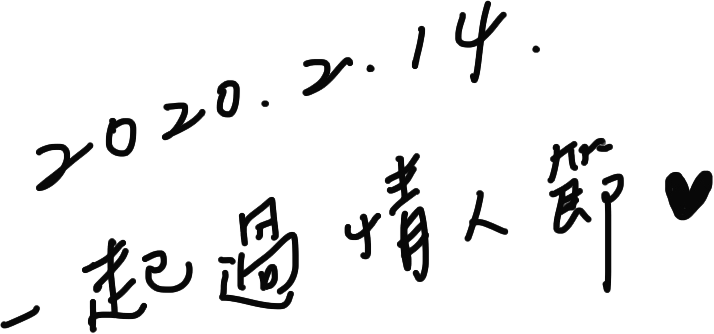 2020.2.14.
一起過情人節♥